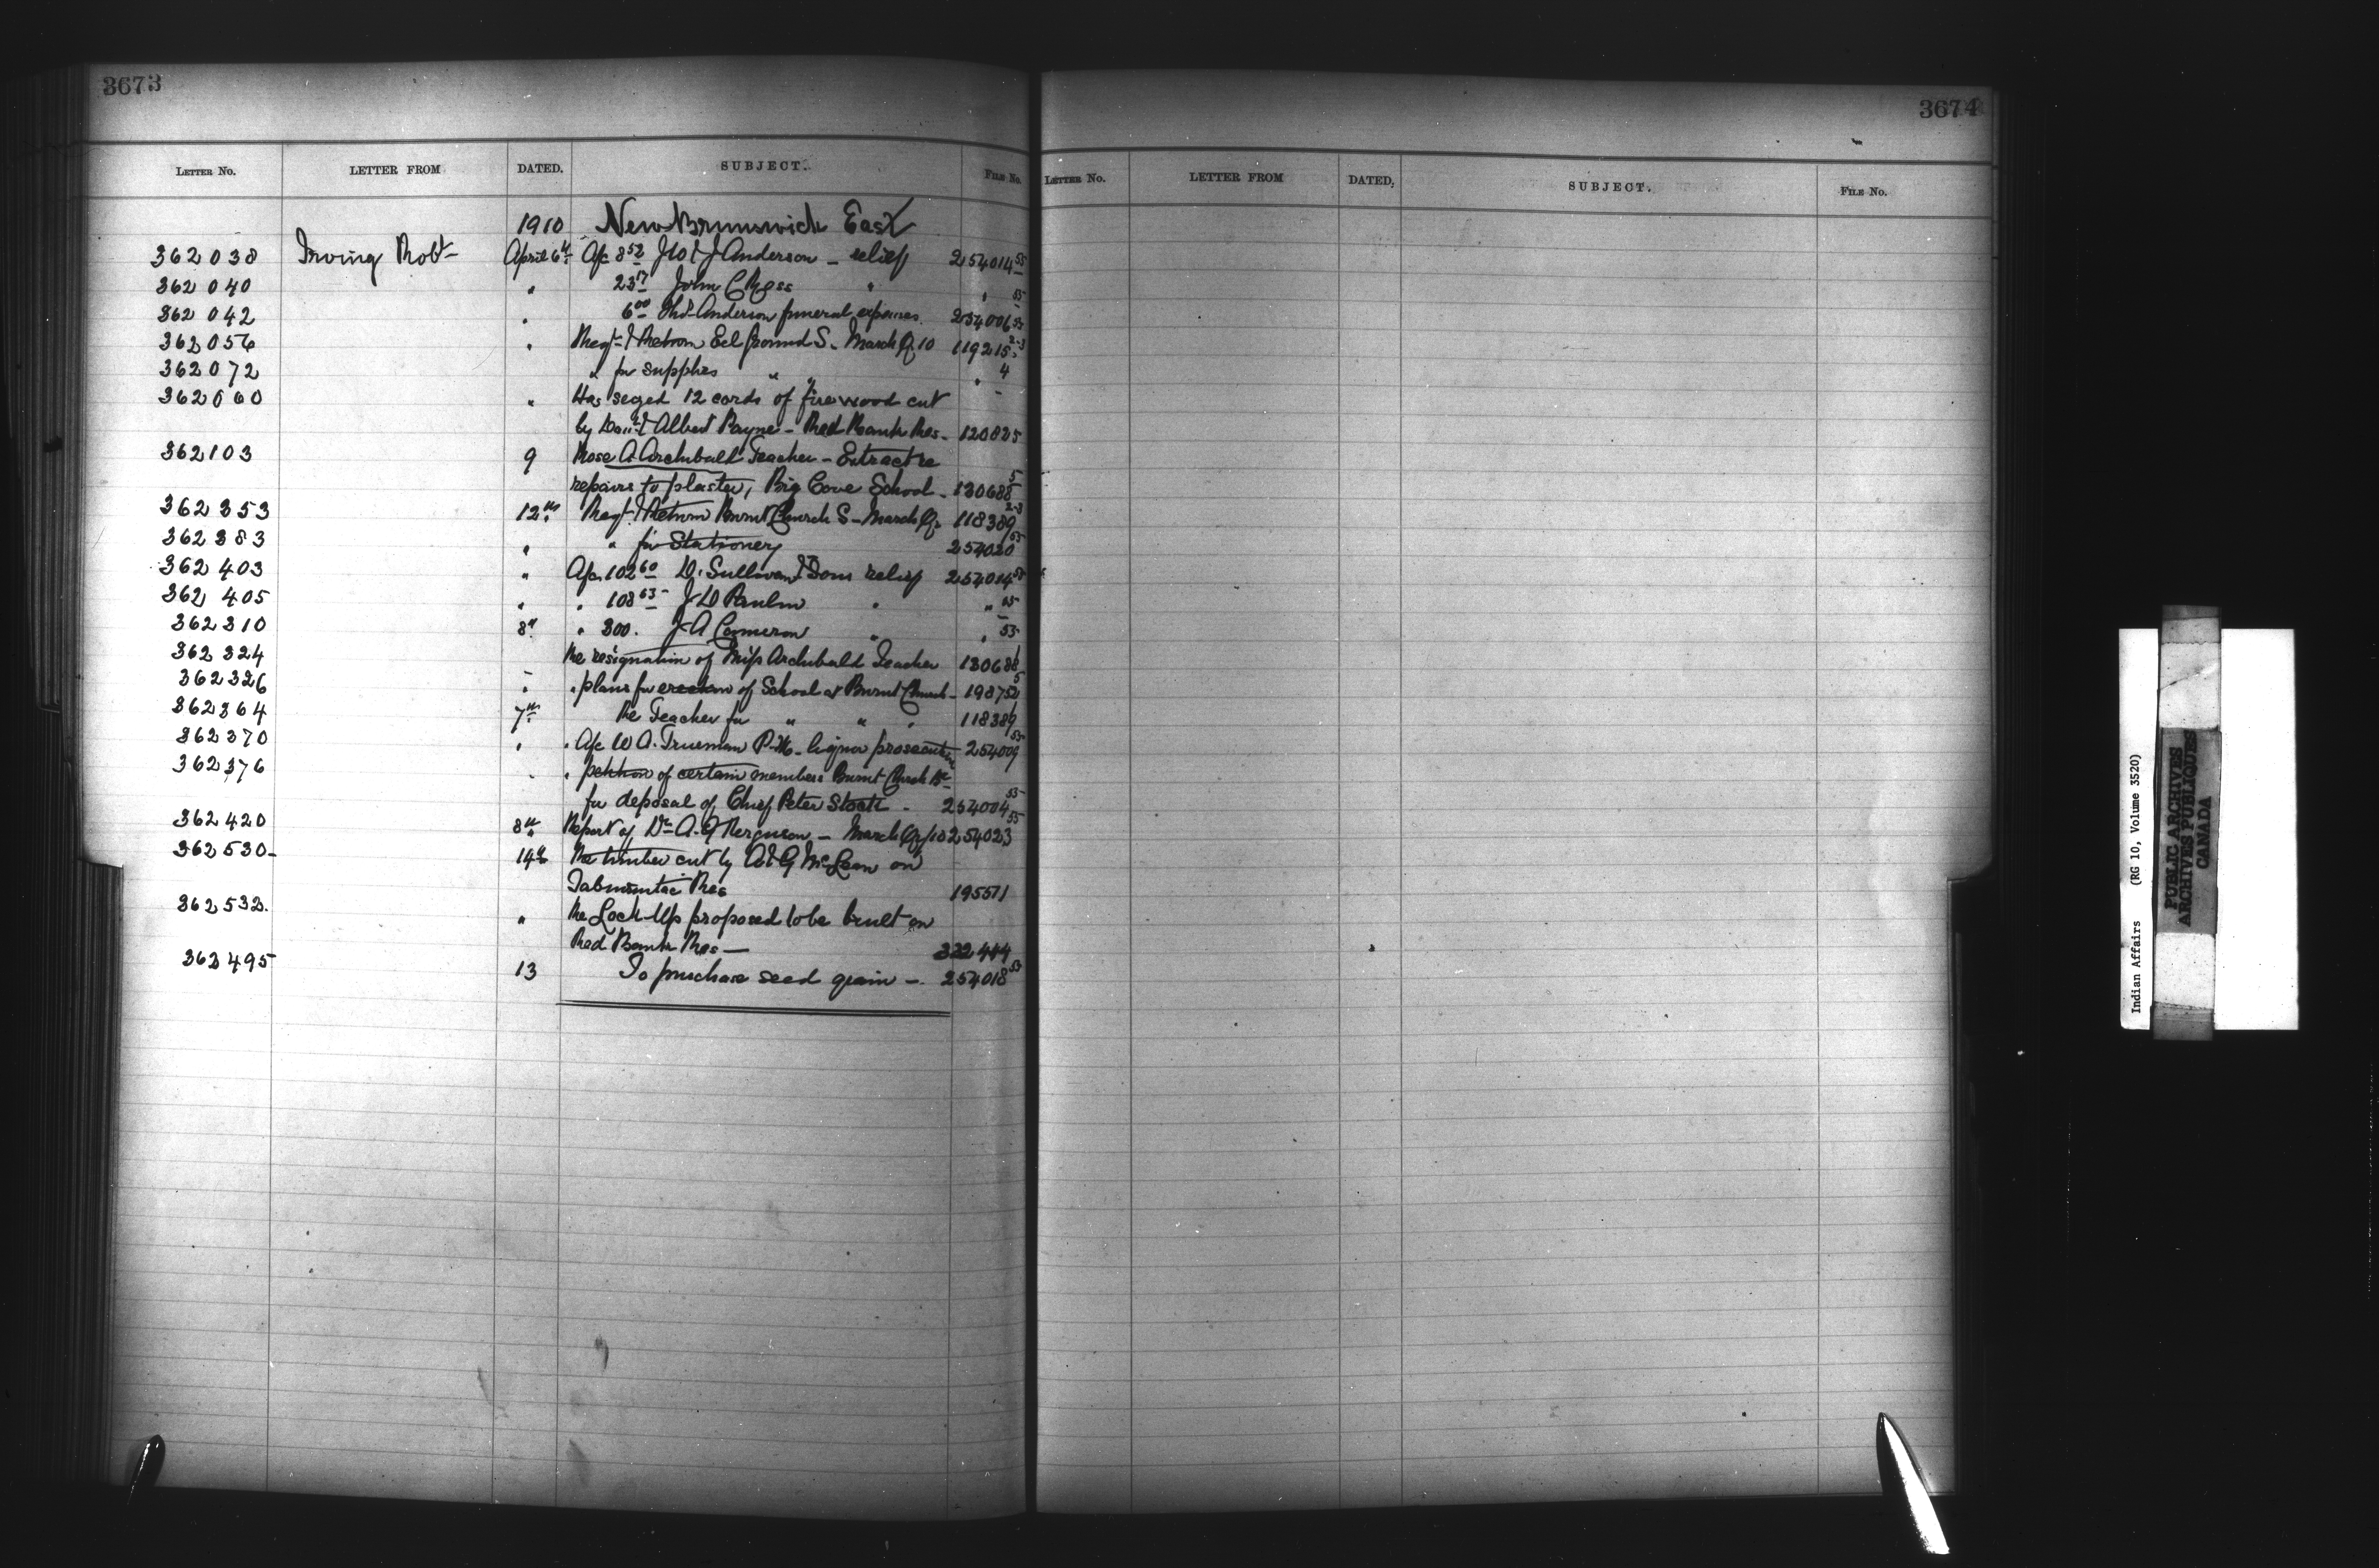 3673
LETTER No. LETTER FROM DATED. SUBJECT. FILE No.
1910 New Brunswick East
362038 Irving Robt April 6th A/c 8 52 W & J Anderson - relief 254014 55
362040 " 23 17 John C Ross " " 55
362042 " 6 00 Anderson funeral expenses 254006 53
362056 " Regr & Return Eel Ground S. March Q. 10 119215 2-3
362072 " for supplies " " " 4
362060 " Has seized 12 cords of firewood cut
by & Albert Payne - Red Bank Res - 120825
362103 9 Rose A Archibald Teacher - Extract re
repairs to plaster, Big Cove School - 130688 5
362353 12th Regr & Return Burnt Church S - March Qr 118389 2-3
362383 " " for Stationery 254020 53
362403 " A/c 102 60 D. Sullivan & Sons relief 254014 53
362405 " " 108 63 " " 55
362310 8" " 300. J A Cameron " " 53
362324 Re resignation of Miss Archibald Teacher 130688 1
362326 " " plans for erection of School at Burnt Church - 198752 5
362364 7th Re Teacher for " " " 118389 1
362370 " " A/c W A. Trueman P.M. liquor prosecution 254009 53
362376 " " petition of certain members Burnt Church
for deposal of Chief Peter - 254004 53
362420 8th Report of Dr A. Ferguson - March Qr/10 254023 55
362530 - 14th Re timber cut by A & G McLean on
Tabusintac Res 195571
362532. " Re Lock-Up proposed to be built on
Red Bank Res - 322444
362495 13 To purchase seed grain - 254018 53
3674
LETTER No. LETTER FROM DATED. SUBJECT. FILE No.
Indian Affairs (RG 10, Volume 3520)
PUBLIC ARCHIVES
ARCHIVES PUBLIQUES
CANADA